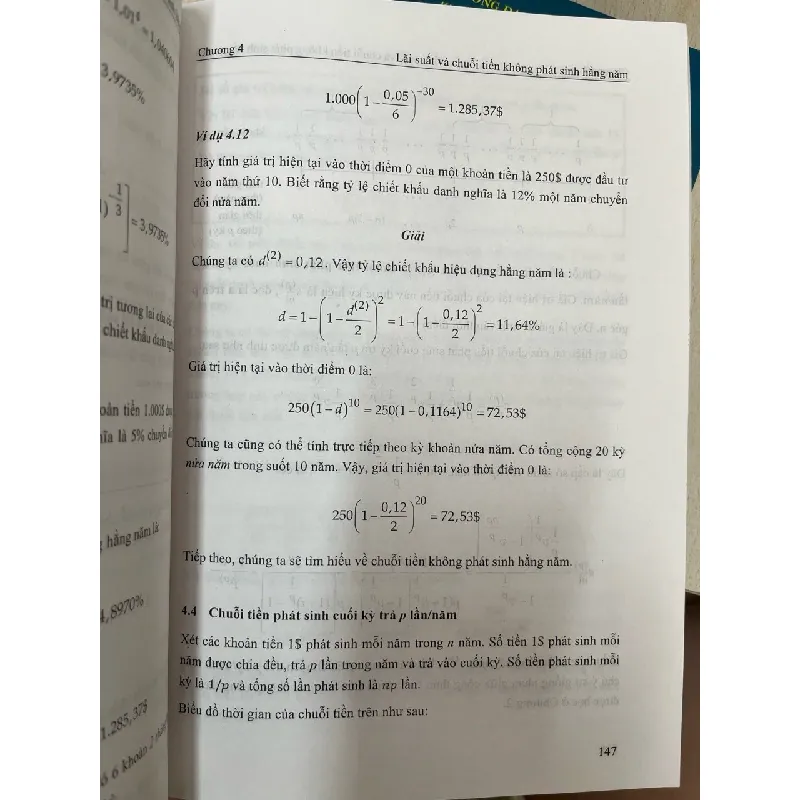 Chương 4
Lãi suất và chuỗi tiền không phát sinh hằng năm
1.000(1−0,05/6)^−30 = 1.285,37$
Ví dụ 4.12
Hãy tính giá trị hiện tại vào thời điểm 0 của một khoản tiền là 250$ được đầu tư
vào năm thứ 10. Biết rằng tỷ lệ chiết khấu danh nghĩa là 12% một năm chuyển
đổi nửa năm.
Giải
Chúng ta có d^(2) = 0,12. Vậy tỷ lệ chiết khấu hiệu dụng hằng năm là :
d = 1−(1−d^(2)/2)^2 = 1−(1−0,12/2)^2 = 11,64%
Giá trị hiện tại vào thời điểm 0 là:
250(1−d)^10 = 250(1−0,1164)^10 = 72,53$
Chúng ta cũng có thể tính trực tiếp theo kỳ khoản nửa năm. Có tổng cộng 20 kỳ
nửa năm trong suốt 10 năm. Vậy, giá trị hiện tại vào thời điểm 0 là:
250(1−0,12/2)^20 = 72,53$
Tiếp theo, chúng ta sẽ tìm hiểu về chuỗi tiền không phát sinh hằng năm.
4.4 Chuỗi tiền phát sinh cuối kỳ trả p lần/năm
Xét các khoản tiền 1$ phát sinh mỗi năm trong n năm. Số tiền 1$ phát sinh mỗi
năm được chia đều, trả p lần trong năm và trả vào cuối kỳ. Số tiền phát sinh mỗi
kỳ là 1/p và tổng số lần phát sinh là np lần.
Biểu đồ thời gian của chuỗi tiền trên như sau:
147
3,9735%
= 3,9735%
trị tương lai của
chiết khấu danh
oản tiền 1.000$
ĩa là 5% chuyển
hằng năm là
4,8970%
1.285,37$
ó 6 khoản 2